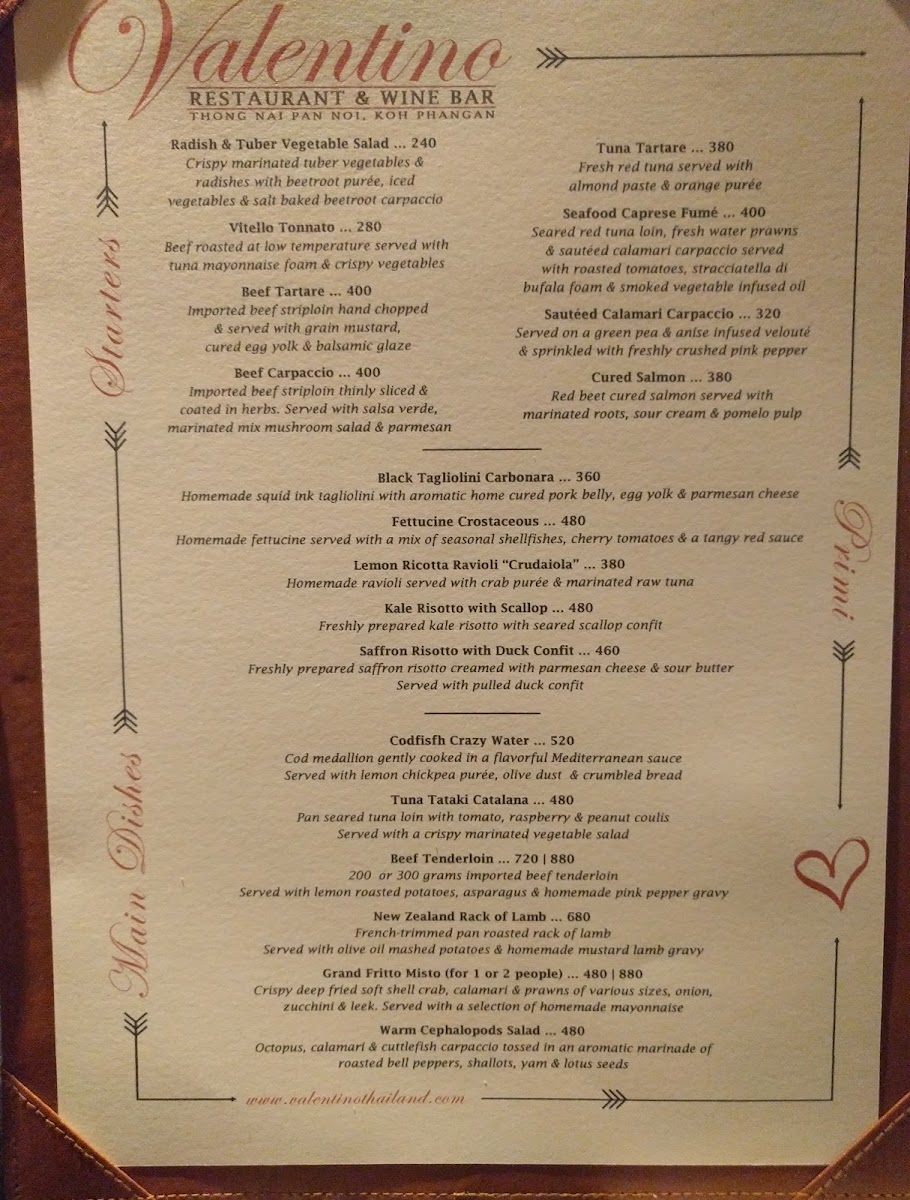 Valentino
RESTAURANT & WINE BAR
THONG NAI PAN NOI, KOH PHANGAN
Starters
Radish & Tuber Vegetable Salad ... 240
Crispy marinated tuber vegetables &
radishes with beetroot purée, iced
vegetables & salt baked beetroot carpaccio
Vitello Tonnato ... 280
Beef roasted at low temperature served with
tuna mayonnaise foam & crispy vegetables
Beef Tartare ... 400
Imported beef striploin hand chopped
& served with grain mustard,
cured egg yolk & balsamic glaze
Beef Carpaccio ... 400
Imported beef striploin thinly sliced &
coated in herbs. Served with salsa verde,
marinated mix mushroom salad & parmesan
Tuna Tartare ... 380
Fresh red tuna served with
almond paste & orange purée
Seafood Caprese Fumé ... 400
Seared red tuna loin, fresh water prawns
& sautéed calamari carpaccio served
with roasted tomatoes, stracciatella di
bufala foam & smoked vegetable infused oil
Sautéed Calamari Carpaccio ... 320
Served on a green pea & anise infused velouté
& sprinkled with freshly crushed pink pepper
Cured Salmon ... 380
Red beet cured salmon served with
marinated roots, sour cream & pomelo pulp
Primi
Black Tagliolini Carbonara ... 360
Homemade squid ink tagliolini with aromatic home cured pork belly, egg yolk & parmesan cheese
Fettucine Crostaceous ... 480
Homemade fettucine served with a mix of seasonal shellfishes, cherry tomatoes & a tangy red sauce
Lemon Ricotta Ravioli “Crudaiola” ... 380
Homemade ravioli served with crab purée & marinated raw tuna
Kale Risotto with Scallop ... 480
Freshly prepared kale risotto with seared scallop confit
Saffron Risotto with Duck Confit ... 460
Freshly prepared saffron risotto creamed with parmesan cheese & sour butter
Served with pulled duck confit
Main Dishes
Codfisfh Crazy Water ... 520
Cod medallion gently cooked in a flavorful Mediterranean sauce
Served with lemon chickpea purée, olive dust & crumbled bread
Tuna Tataki Catalana ... 480
Pan seared tuna loin with tomato, raspberry & peanut coulis
Served with a crispy marinated vegetable salad
Beef Tenderloin ... 720 | 880
200 or 300 grams imported beef tenderloin
Served with lemon roasted potatoes, asparagus & homemade pink pepper gravy
New Zealand Rack of Lamb ... 680
French-trimmed pan roasted rack of lamb
Served with olive oil mashed potatoes & homemade mustard lamb gravy
Grand Fritto Misto (for 1 or 2 people) ... 480 | 880
Crispy deep fried soft shell crab, calamari & prawns of various sizes, onion,
zucchini & leek. Served with a selection of homemade mayonnaise
Warm Cephalopods Salad ... 480
Octopus, calamari & cuttlefish carpaccio tossed in an aromatic marinade of
roasted bell peppers, shallots, yam & lotus seeds
www.valentinothailand.com